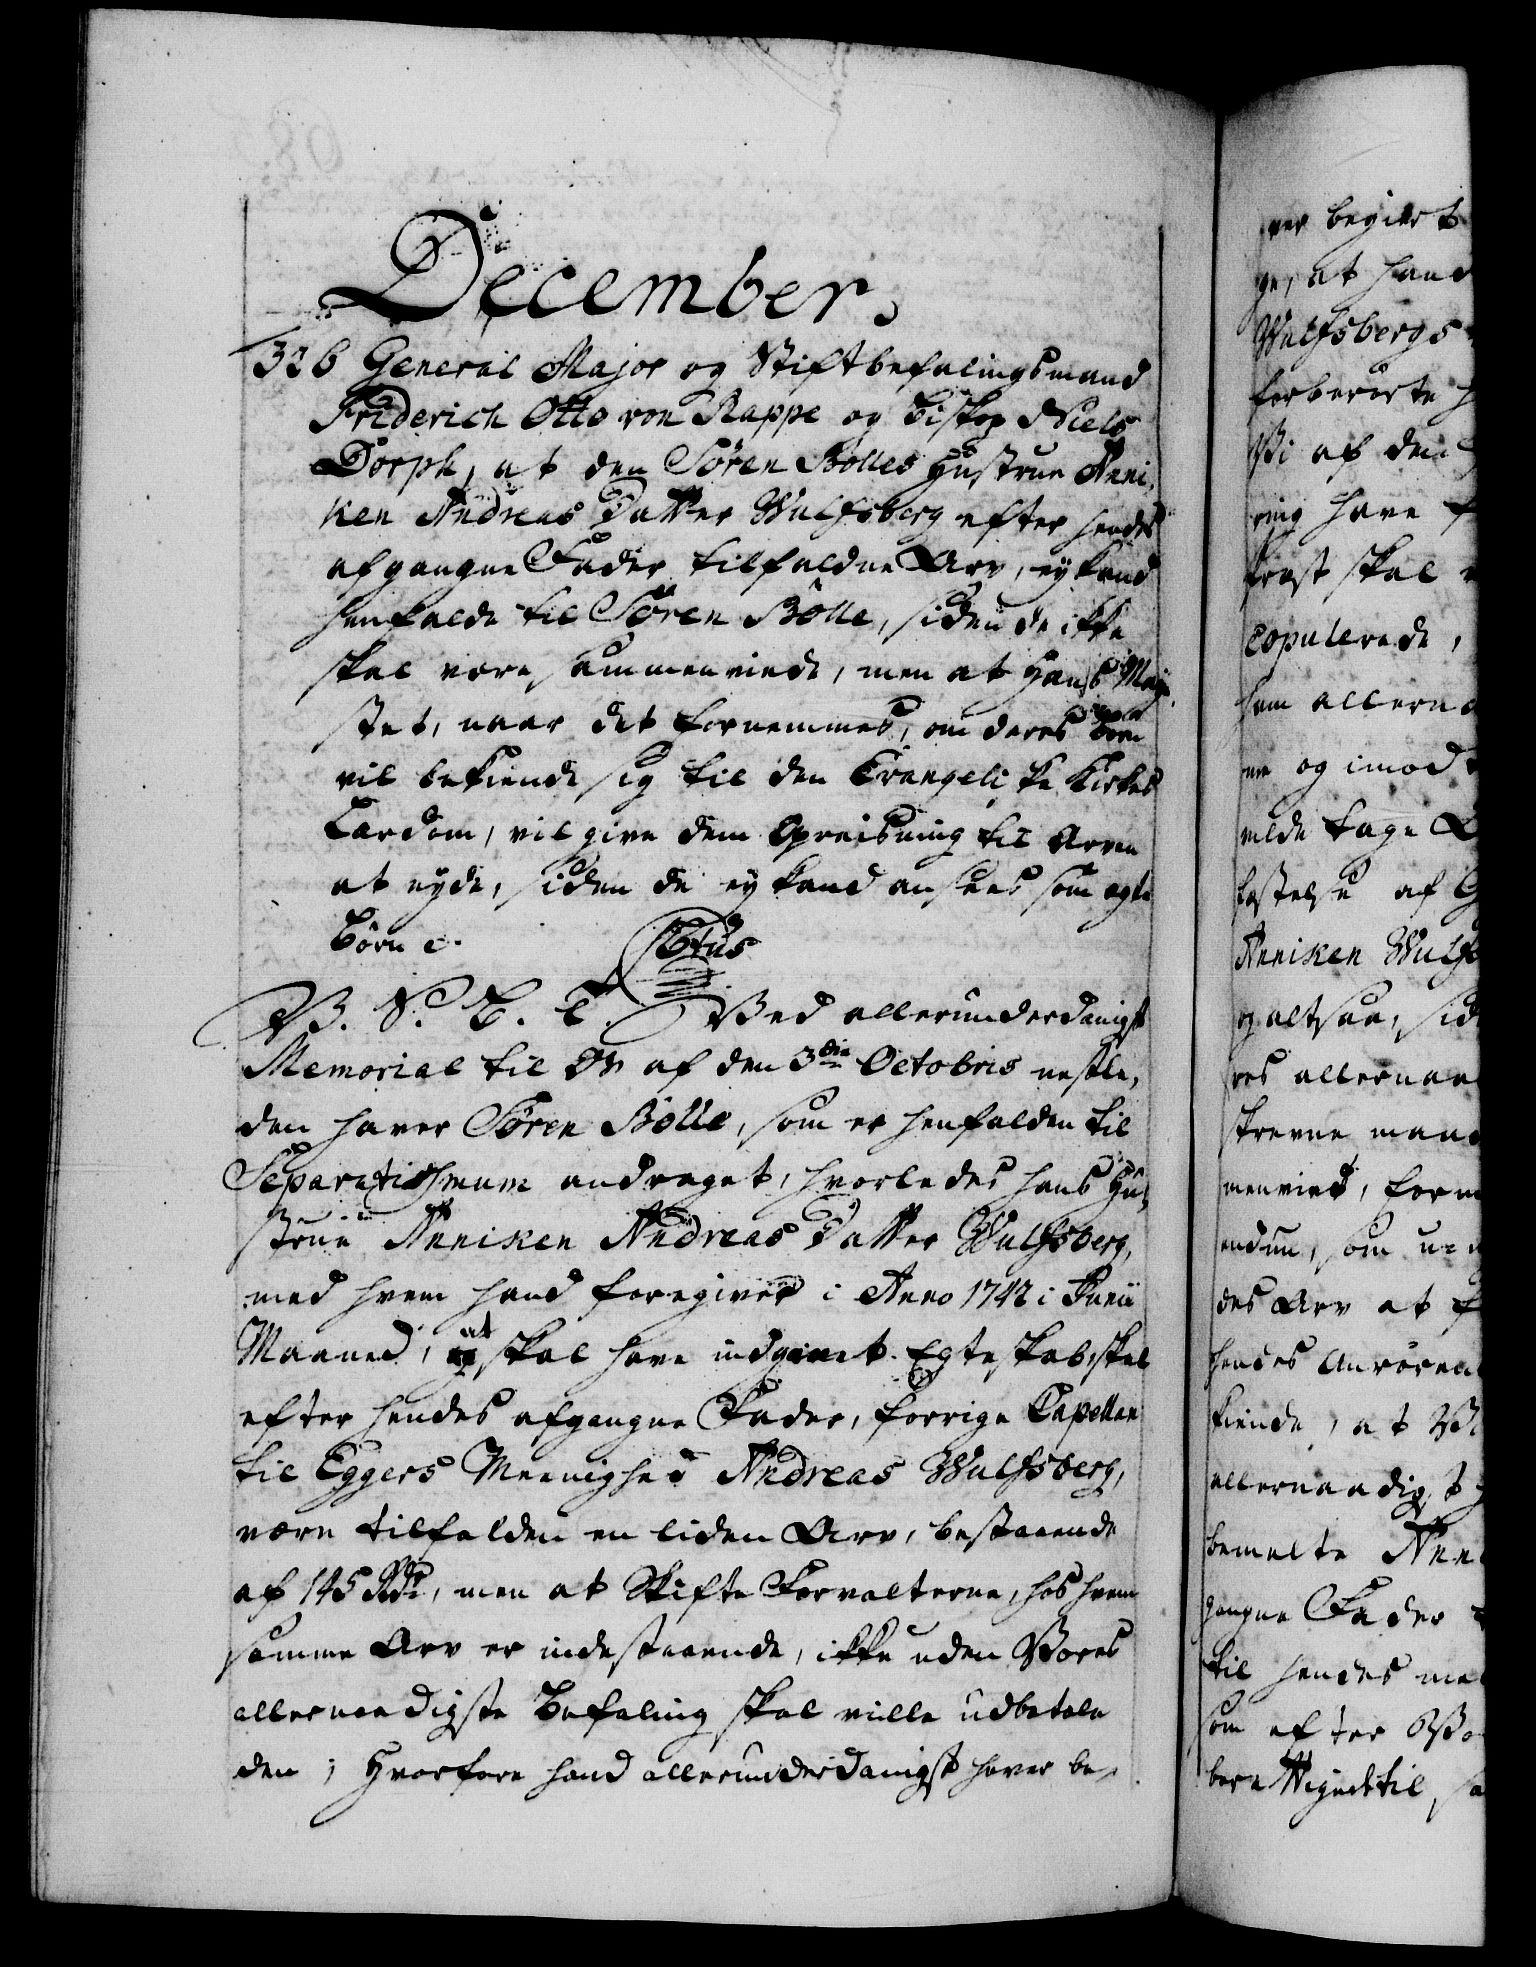 December.
326 General Major og Stiftbefalingsmand
Friderich Otto von Rappe og Biskop Niels
Dorph, at den Sören Bölles Hustrue Anni-
ken Andreas Datter Wulfsberg efter hendes
afgangne Fader tilfaldne Arv, ey kand
henfalde til Sören Bölle, siden de ikke
skal være sammenviede, men at Hans Maje-
stet, naar det fornemmes, om deres Børn
vil bekiende sig til den Evangeliske Kirkes
Lærdom, vil give dem Opreisning til Arven
at nyde, siden de ey kand ansees som ægte
Börn e.
Ctus
V. S. G. T. Ved allerunderdanigst
Memorial til Os af den 3die Octobris nestle-
den haver Sören Bölle, som er henfalden til
Separatismum andraget, hvorledes hans Hu-
strue Anniken Andreas Datter Wulfsberg,
med hvem hand foregiver i Anno 1742 i Junii
Maaned, at skal have indgaaet Egteskab, skal
efter hendes afgangne Fader, forrige Capellan
til Eggers Meenighed Andreas Wulfsberg,
være tilfalden en liden Arv, bestaaende
af 145 Rdr, men at Skifte Forvalterne, hos hvem
samme Arv er indestaaende, ikke uden Vores
allernaadigste Befaling skal ville udbetale
den; Hvorfore hand allerunderdanigst haver be-
ver begiert
ge, at hand
Wulfsbergs
forberörte
Vi af den
ring have
frast skal
copulerede,
ham allerna
ne og imod
vilde tage
fæstelse af G
Anniken Wulfs
og altsaa, sid
res allernaa
skrevne maa
menviet, form
endnu, som
des Arv at
hendes anrören
kiende, at Vi
allernaadigst
bemelte Ann
gangne Fader
til hendes me
som efter Vo
bare Vigselstil, sa